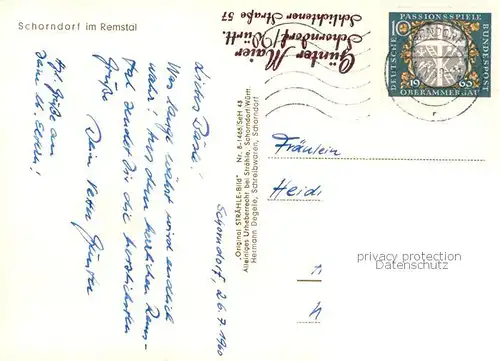 Schorndorf im Remstal
Günter Maier
Schorndorf/Württ.
Schlichtener Straße 57
DEUTSCHE BUNDESPOST
PASSIONSSPIELE
10
1960
OBERAMMERGAU
Schorndorf, 26.7.1960
Liebes Bäsle!
Was lange währt wird endlich
wahr! Aus dem herrlichen Rems-
tal sendet Dir die herzlichsten
Grüße
Dein Vetter Günter
Hzl. Grüße an
Deine lb. Eltern!
"Original STRÄHLE-Bild" Nr. 6-1468/SeH 43
Alleiniges Urheberrecht bei Strähle, Schorndorf/Württ.
Hermann Degele, Schreibwaren, Schorndorf
Fräulein
Heidi
privacy protection
Datenschutz